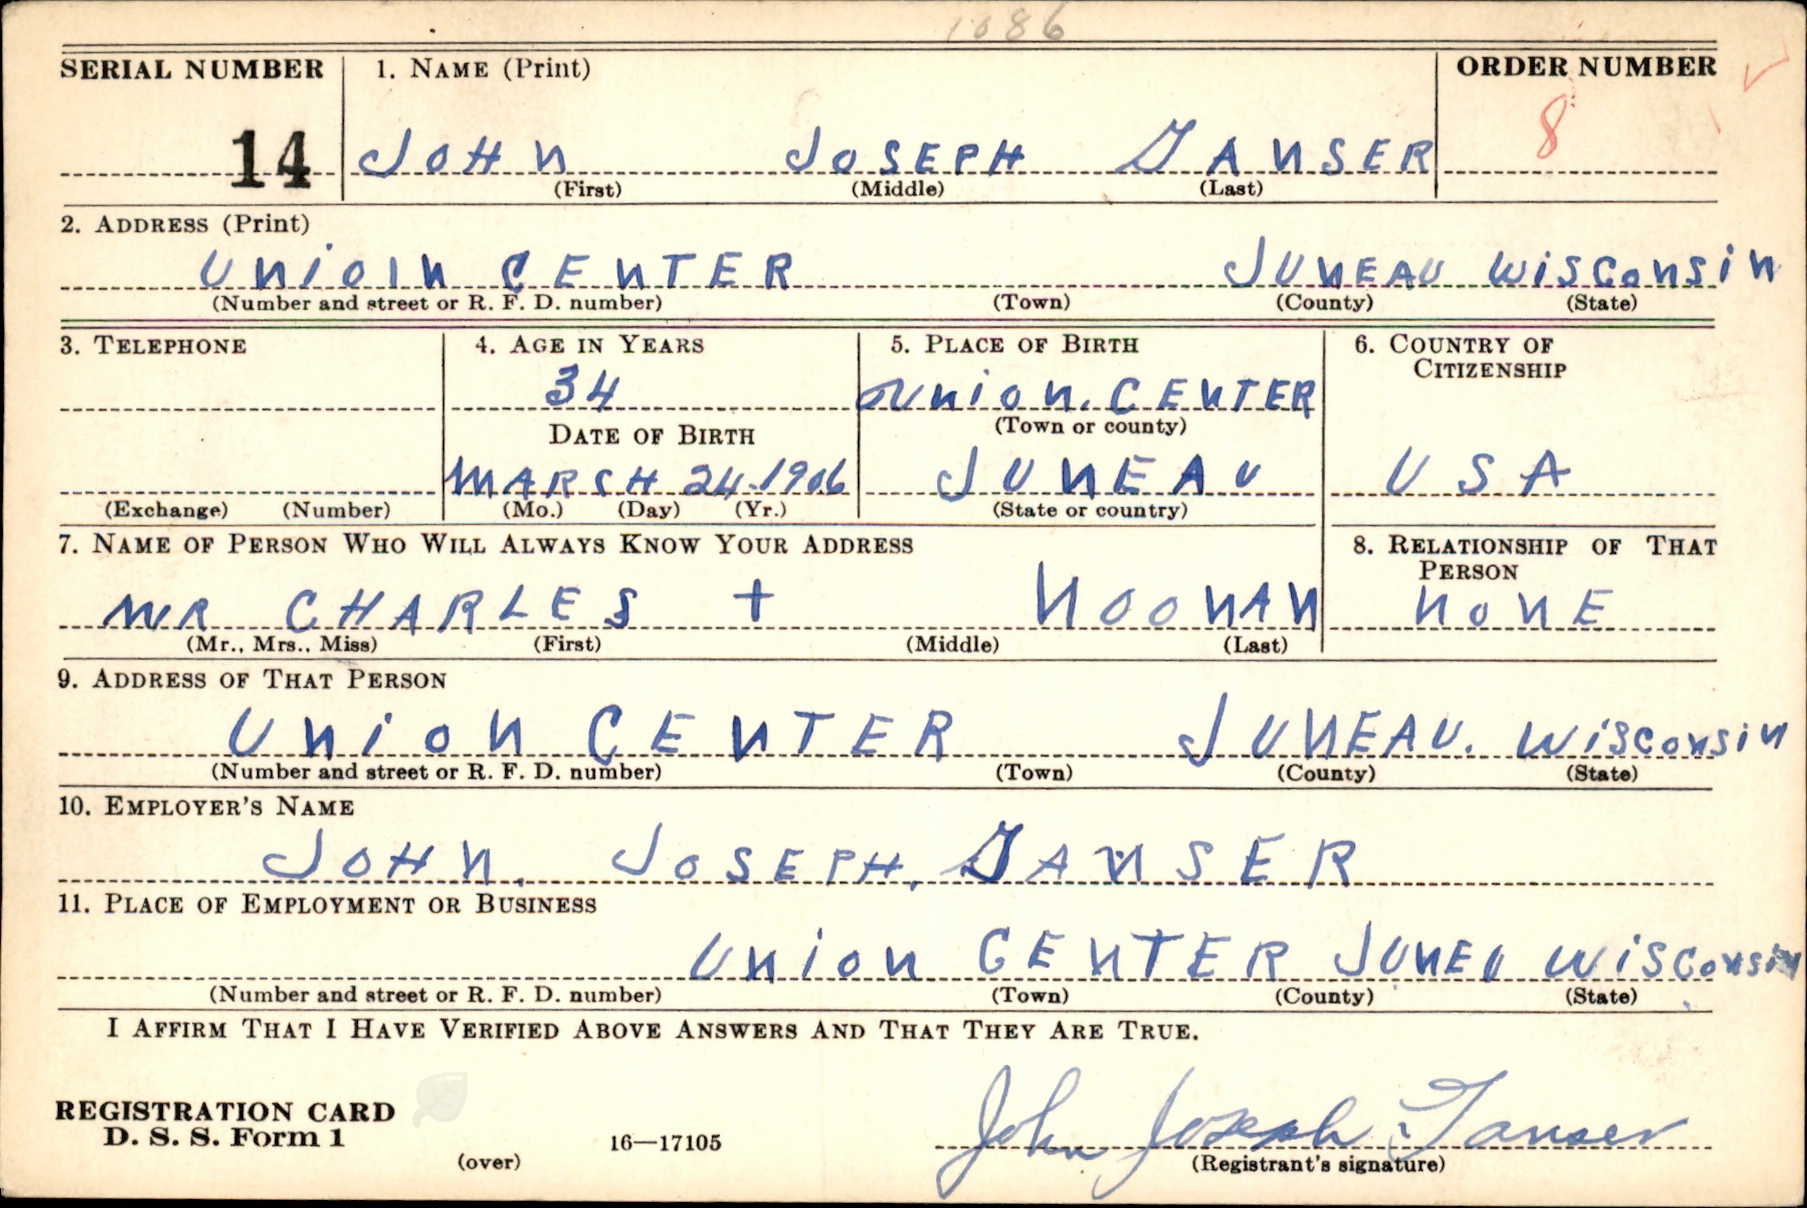 1086
SERIAL NUMBER 1. NAME (Print) ORDER NUMBER
14 JOHN JOSEPH GANSER 8
(First) (Middle) (Last)
2. ADDRESS (Print)
UNIOIN CENTER JUNEAU WISCONSIN
(Number and street or R. F. D. number) (Town) (County) (State)
3. TELEPHONE 4. AGE IN YEARS 5. PLACE OF BIRTH 6. COUNTRY OF
CITIZENSHIP
34 Union. CENTER
DATE OF BIRTH (Town or county)
MARCH 24-1906 JUNEAU USA
(Exchange) (Number) (Mo.) (Day) (Yr.) (State or country)
7. NAME OF PERSON WHO WILL ALWAYS KNOW YOUR ADDRESS 8. RELATIONSHIP OF THAT
PERSON
MR CHARLES + NOONAN NONE
(Mr., Mrs., Miss) (First) (Middle) (Last)
9. ADDRESS OF THAT PERSON
UNION CENTER JUNEAU. WISCONSIN
(Number and street or R. F. D. number) (Town) (County) (State)
10. EMPLOYER'S NAME
JOHN. JOSEPH. GANSER
11. PLACE OF EMPLOYMENT OR BUSINESS
UNION CENTER JUNEU WISCONSIN
(Number and street or R. F. D. number) (Town) (County) (State)
I AFFIRM THAT I HAVE VERIFIED ABOVE ANSWERS AND THAT THEY ARE TRUE.
REGISTRATION CARD
D. S. S. Form 1 16—17105 John Joseph Ganser
(over) (Registrant's signature)